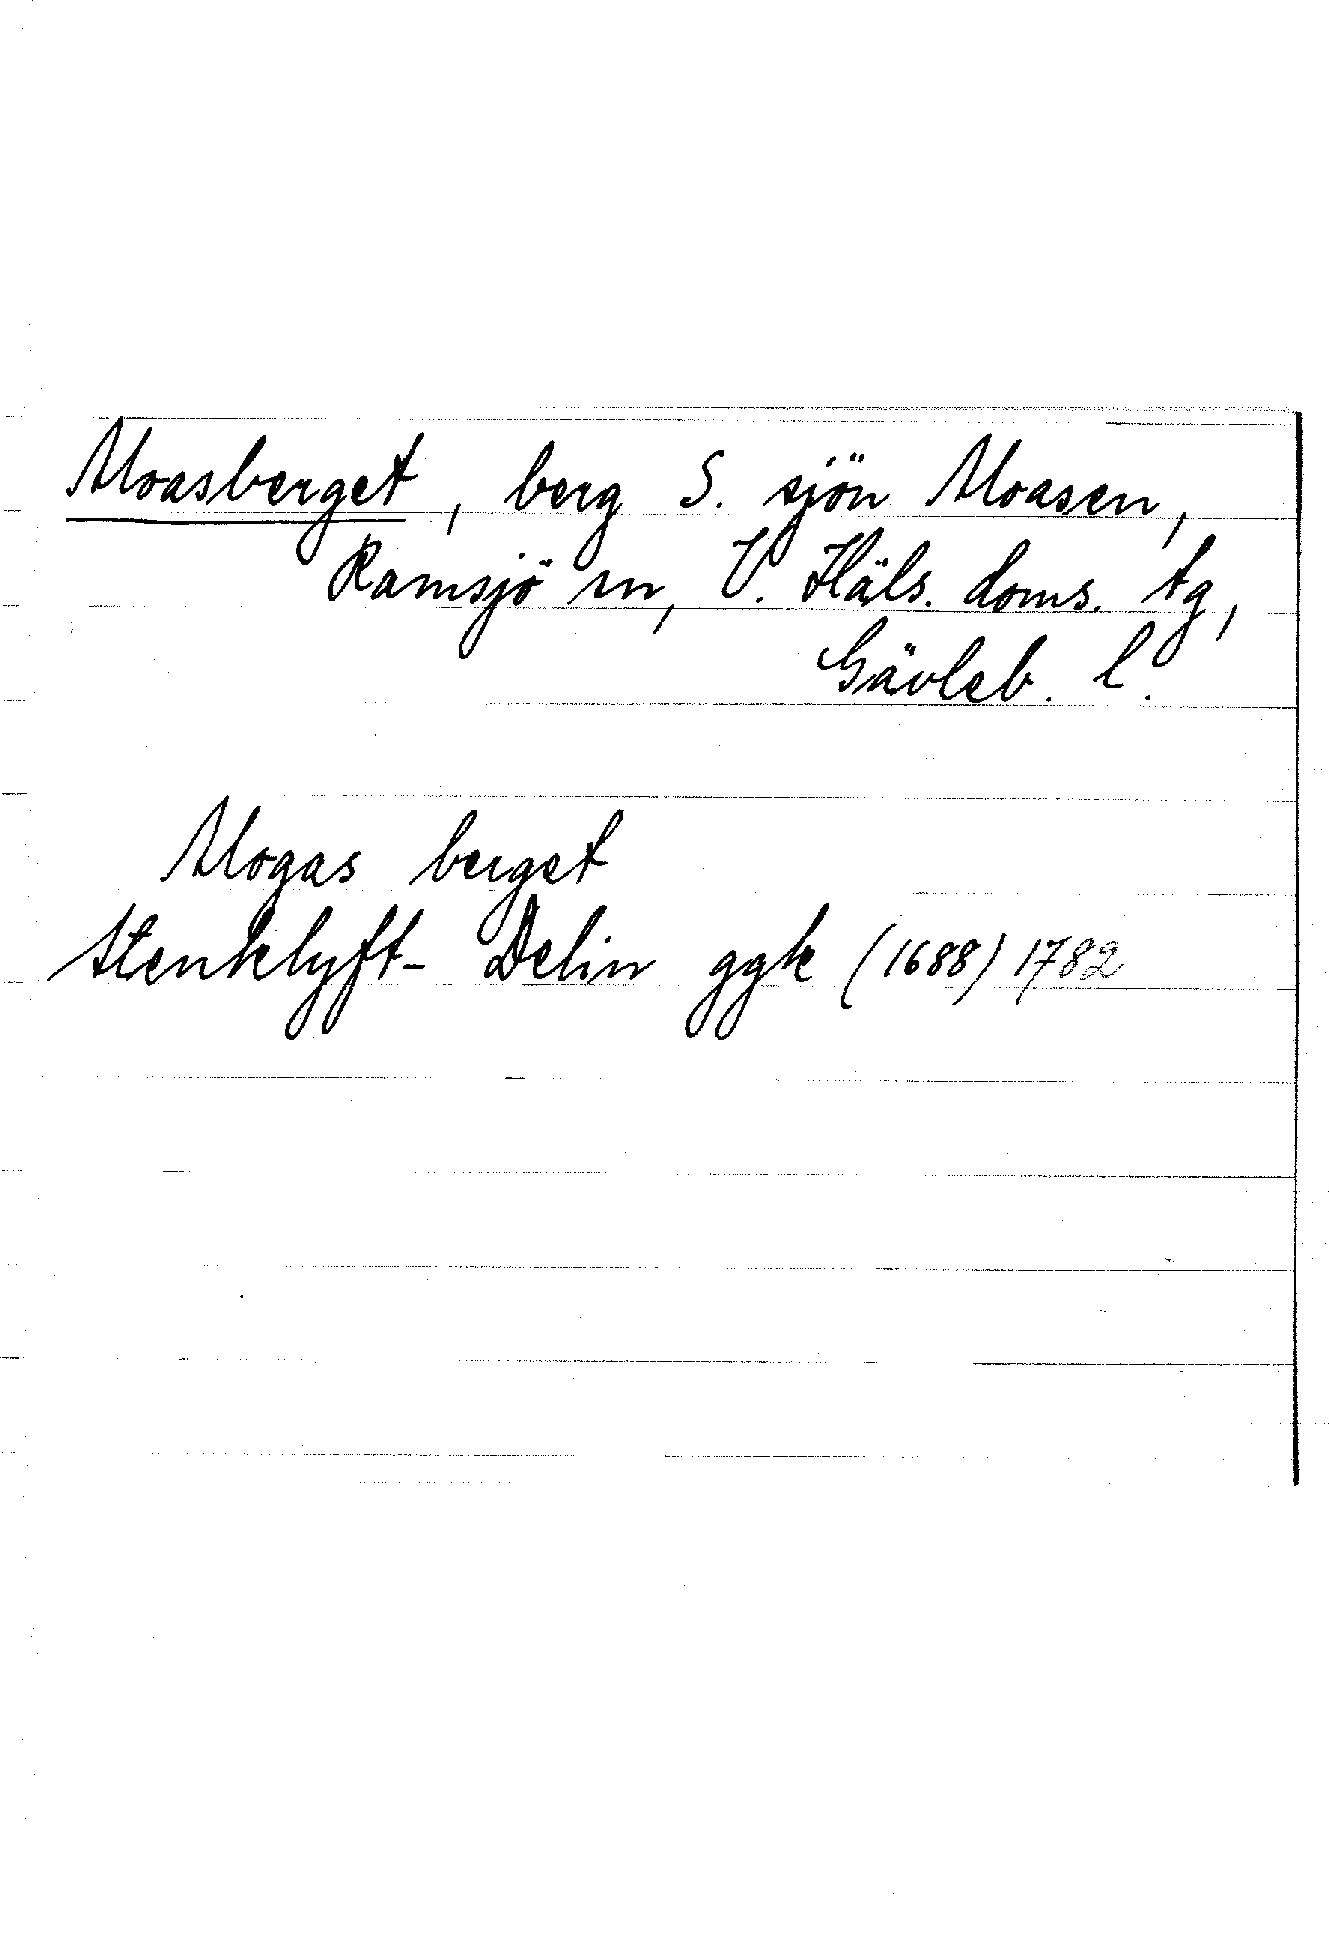 Moasberget, berg S. sjön Moasen,
Ramsjö sn, V. Häls. doms. tg,
Gävleb. l.
Mogas berget
Stenklyft- Delin ggk (1688) 1782